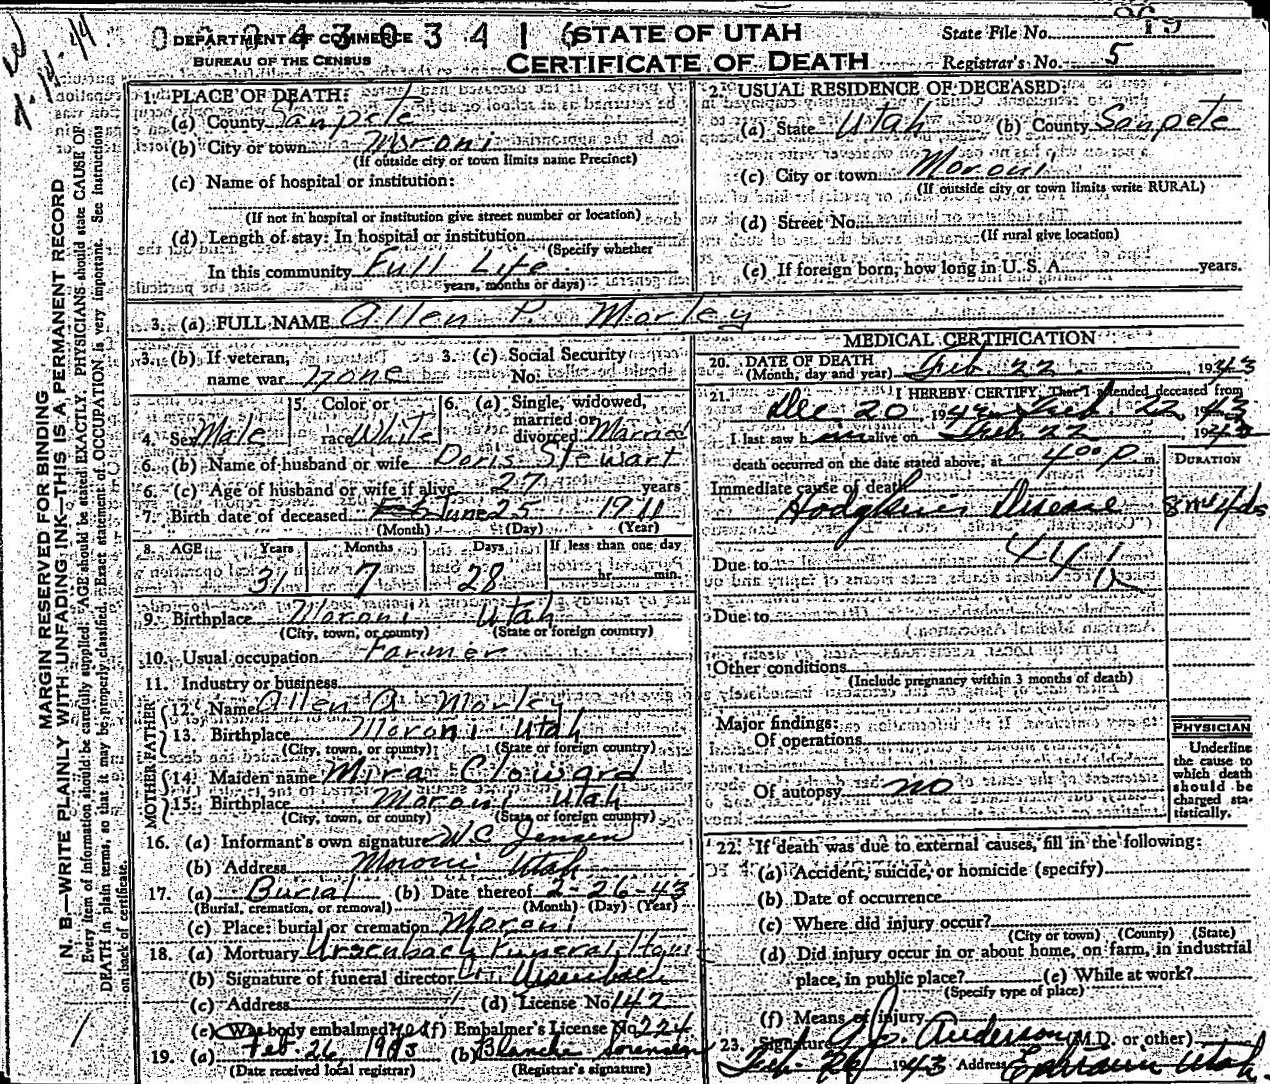 0 0 4 3 0 3 4 1 6
DEPARTMENT OF COMMERCE
BUREAU OF THE CENSUS
STATE OF UTAH
CERTIFICATE OF DEATH
State File No.
Registrar's No. 5
MARGIN RESERVED FOR BINDING
N. B.—WRITE PLAINLY WITH UNFADING INK—THIS IS A PERMANENT RECORD
Every item of information should be carefully supplied. AGE should be stated EXACTLY. PHYSICIANS should state CAUSE OF
DEATH in plain terms, so that it may be properly classified. Exact statement of OCCUPATION is very important. See instructions
on back of certificate.
1. PLACE OF DEATH:
(a) County Sanpete
(b) City or town Moroni
(If outside city or town limits name Precinct)
(c) Name of hospital or institution:
(If not in hospital or institution give street number or location)
(d) Length of stay: In hospital or institution
(Specify whether
In this community Full Life
years, months or days)
2. USUAL RESIDENCE OF DECEASED
(a) State Utah (b) County Sanpete
(c) City or town Moroni
(If outside city or town limits write RURAL)
(d) Street No.
(If rural give location)
(e) If foreign born, how long in U. S. A. years.
3. (a) FULL NAME Allen P. Morley
3. (b) If veteran, name war None
3. (c) Social Security No.
4. Sex Male
5. Color or race White
6. (a) Single, widowed, married or divorced Married
6. (b) Name of husband or wife Doris Stewart
6. (c) Age of husband or wife if alive 27 years
7. Birth date of deceased June 25 1911
(Month) (Day) (Year)
8. AGE Years Months Days If less than one day
31 7 28 hr. min.
9. Birthplace Moroni Utah
(City, town, or county) (State or foreign country)
10. Usual occupation Farmer
11. Industry or business
FATHER
12. Name Allen A. Morley
13. Birthplace Moroni Utah
(City, town, or county) (State or foreign country)
MOTHER
14. Maiden name Mira Cloward
15. Birthplace Moroni Utah
(City, town, or county) (State or foreign country)
16. (a) Informant's own signature W.C. Jensen
(b) Address Moroni Utah
17. (a) Burial (b) Date thereof 2-26-43
(Burial, cremation, or removal) (Month) (Day) (Year)
(c) Place: burial or cremation Moroni
18. (a) Mortuary Ursenbach Funeral Home
(b) Signature of funeral director Ursenbach
(c) Address (d) License No. 142
(e) Was body embalmed? Yes (f) Embalmer's License No. 224
19. (a) Feb. 26, 1943 (b) Blanche Sorensen
(Date received local registrar) (Registrar's signature)
MEDICAL CERTIFICATION
20. DATE OF DEATH
(Month, day and year) Feb 22, 1943
21. I HEREBY CERTIFY, That I attended deceased from
Dec 20 1942 to Feb 22 1943
I last saw him alive on Feb 22 1943
death occurred on the date stated above, at 4:00 P m.
DURATION
Immediate cause of death
Hodgkins Disease
Due to
Due to
Other conditions
(Include pregnancy within 3 months of death)
Major findings:
Of operations
Of autopsy no
PHYSICIAN
Underline
the cause to
which death
should be
charged sta-
tistically.
22. If death was due to external causes, fill in the following:
(a) Accident, suicide, or homicide (specify)
(b) Date of occurrence
(c) Where did injury occur?
(City or town) (County) (State)
(d) Did injury occur in or about home, on farm, in industrial
place, in public place? (e) While at work?
(Specify type of place)
(f) Means of injury
23. Signature Anderson (M.D. or other)
Feb 26 1943 Address Ephraim Utah.